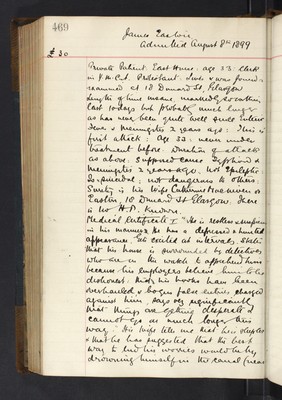 469
James Easton
Admitted August 8th 1899
£30
Private Patient. East House. age 33. Clerk
in Protestant. Lives & was found &
examined at 18 Dunard St, Glasgow
length of time insane, markedly so within
last 10 days but probably much longer
as has never been quite well since Enteric
fever & Meningitis 2 years ago: This is
first attack: Age 33: never under
treatment before. Duration of attack
as above: supposed cause Typhoid &
Meningitis 2 years ago. Not Epileptic
Suicidal: not dangerous to others
Surety is his Wife Catherine or
Easton, 18 Dunard St Glasgow. There
is no H.P. known.
Medical Certificate I "He is restless & suspicious
in his manner. He has a depressed & hunted
appearance, is excited at intervals, states
that his house is surrounded by detectives
who are on the watch to apprehend him
because his Employers believe him to be
dishonest. that his books have been
overhauled & bogus false entries charged
against him. Says very significantly
that things are getting desperate &
cannot go on much longer this
way. His Wife tells me that he is sleepless
& that he has suggested that the best
way to end his worries would be by
drowning himself in the canal (near